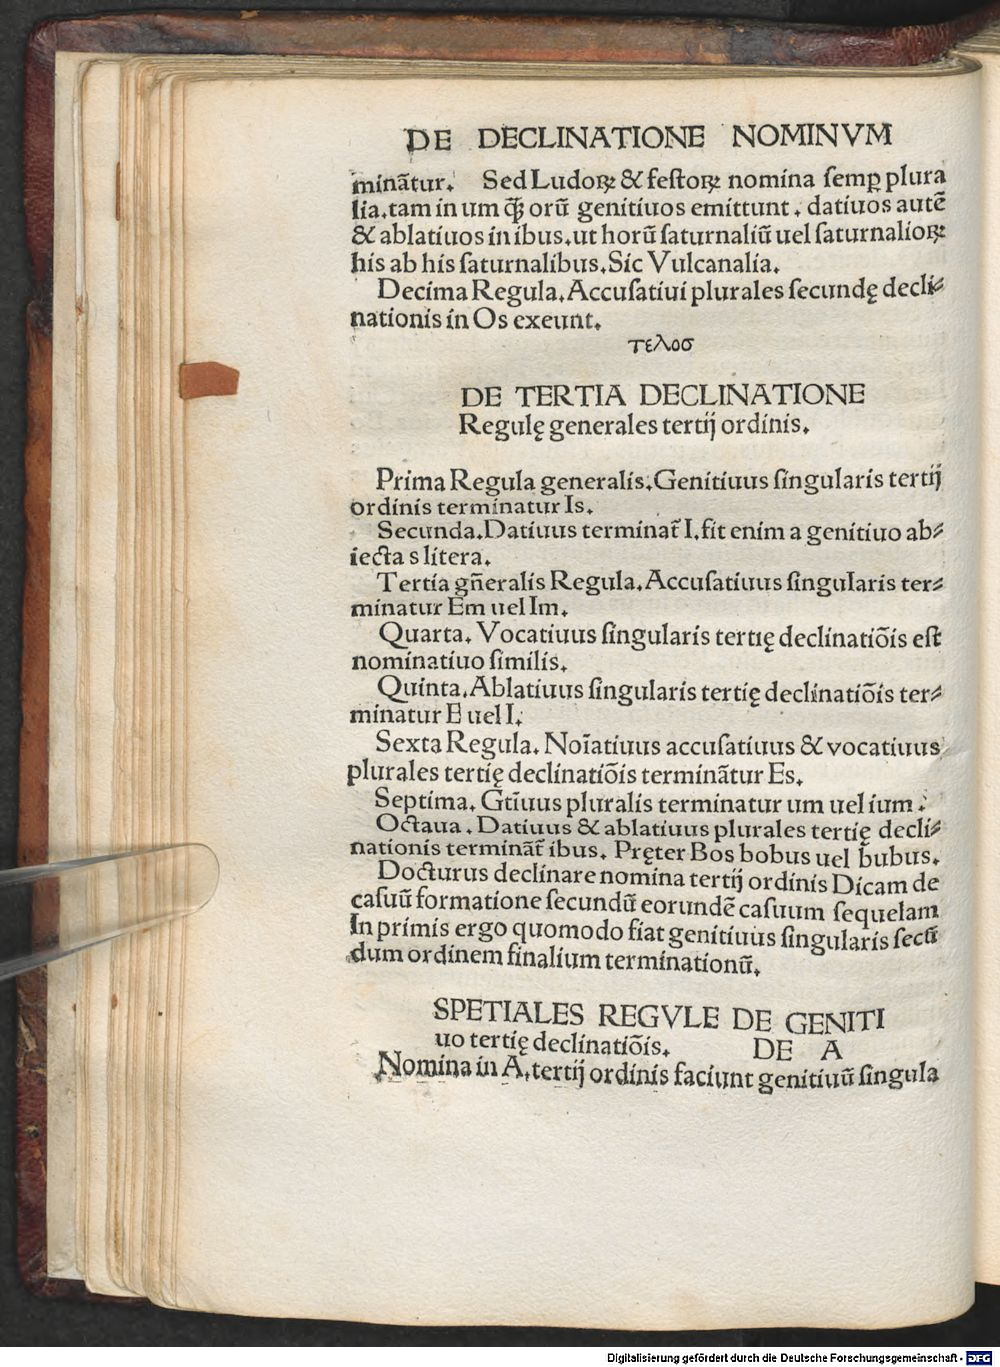 DE DECLINATIONE NOMINVM
minãtur. Sed Ludoꝝ & feſtoꝝ nomina ſemꝑ plura
lia.tam in um ꝙ̃ orũ genitiuos emittunt. datiuos autẽ
& ablatiuos in ibus.ut horũ ſaturnaliũ uel ſaturnalioꝝ
his ab his ſaturnalibus.Sic Vulcanalia.
Decima Regula.Accuſatiui plurales ſecundę decli⸗
nationis in Os exeunt.
τελοσ
DE TERTIA DECLINATIONE
Regulę generales tertij ordinis.
Prima Regula generalis.Genitiuus ſingularis tertij
ordinis terminatur Is.
Secunda.Datiuus terminat̃ I.fit enim a genitiuo ab⸗
iecta s litera.
Tertia gñeralis Regula.Accuſatiuus ſingularis ter⸗
minatur Em uel Im.
Quarta. Vocatiuus ſingularis tertię declinatiõis eſt
nominatiuo ſimilis.
Quinta.Ablatiuus ſingularis tertię declinatiõis ter⸗
minatur E uel I.
Sexta Regula. Noĩatiuus accuſatiuus & vocatiuus
plurales tertię declinatiõis terminãtur Es.
Septima. Gtĩuus pluralis terminatur um uel ium.
Octaua. Datiuus & ablatiuus plurales tertię decli⸗
nationis terminãt̃ ibus. Pręter Bos bobus uel bubus.
Docturus declinare nomina tertij ordinis Dicam de
caſuũ formatione ſecundũ eorundẽ caſuum ſequelam
In primis ergo quomodo fiat genitiuus ſingularis ſecũ
dum ordinem finalium terminationũ.
SPETIALES REGVLE DE GENITI
uo tertię declinatiõis. DE A
Nomina in A.tertij ordinis faciunt genitiuũ ſingula
Digitalisierung gefördert durch die Deutsche Forschungsgemeinschaft - DFG